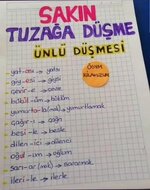 SAKIN
TUZAĞA DÜŞME
ÜNLÜ DÜŞMESİ
yat-ası → yatsı
göğ-esi → göğsü
devir-e → devre
bükül-üm → büklüm
yumurta-la(mak) → yumurtlamak
çağır-ı → çağrı
besi-le → besle
dilen-ici → dilenci
oğul-um → oğlum
sarı-ar(mak) → sararmak
ileri-le → ilerle